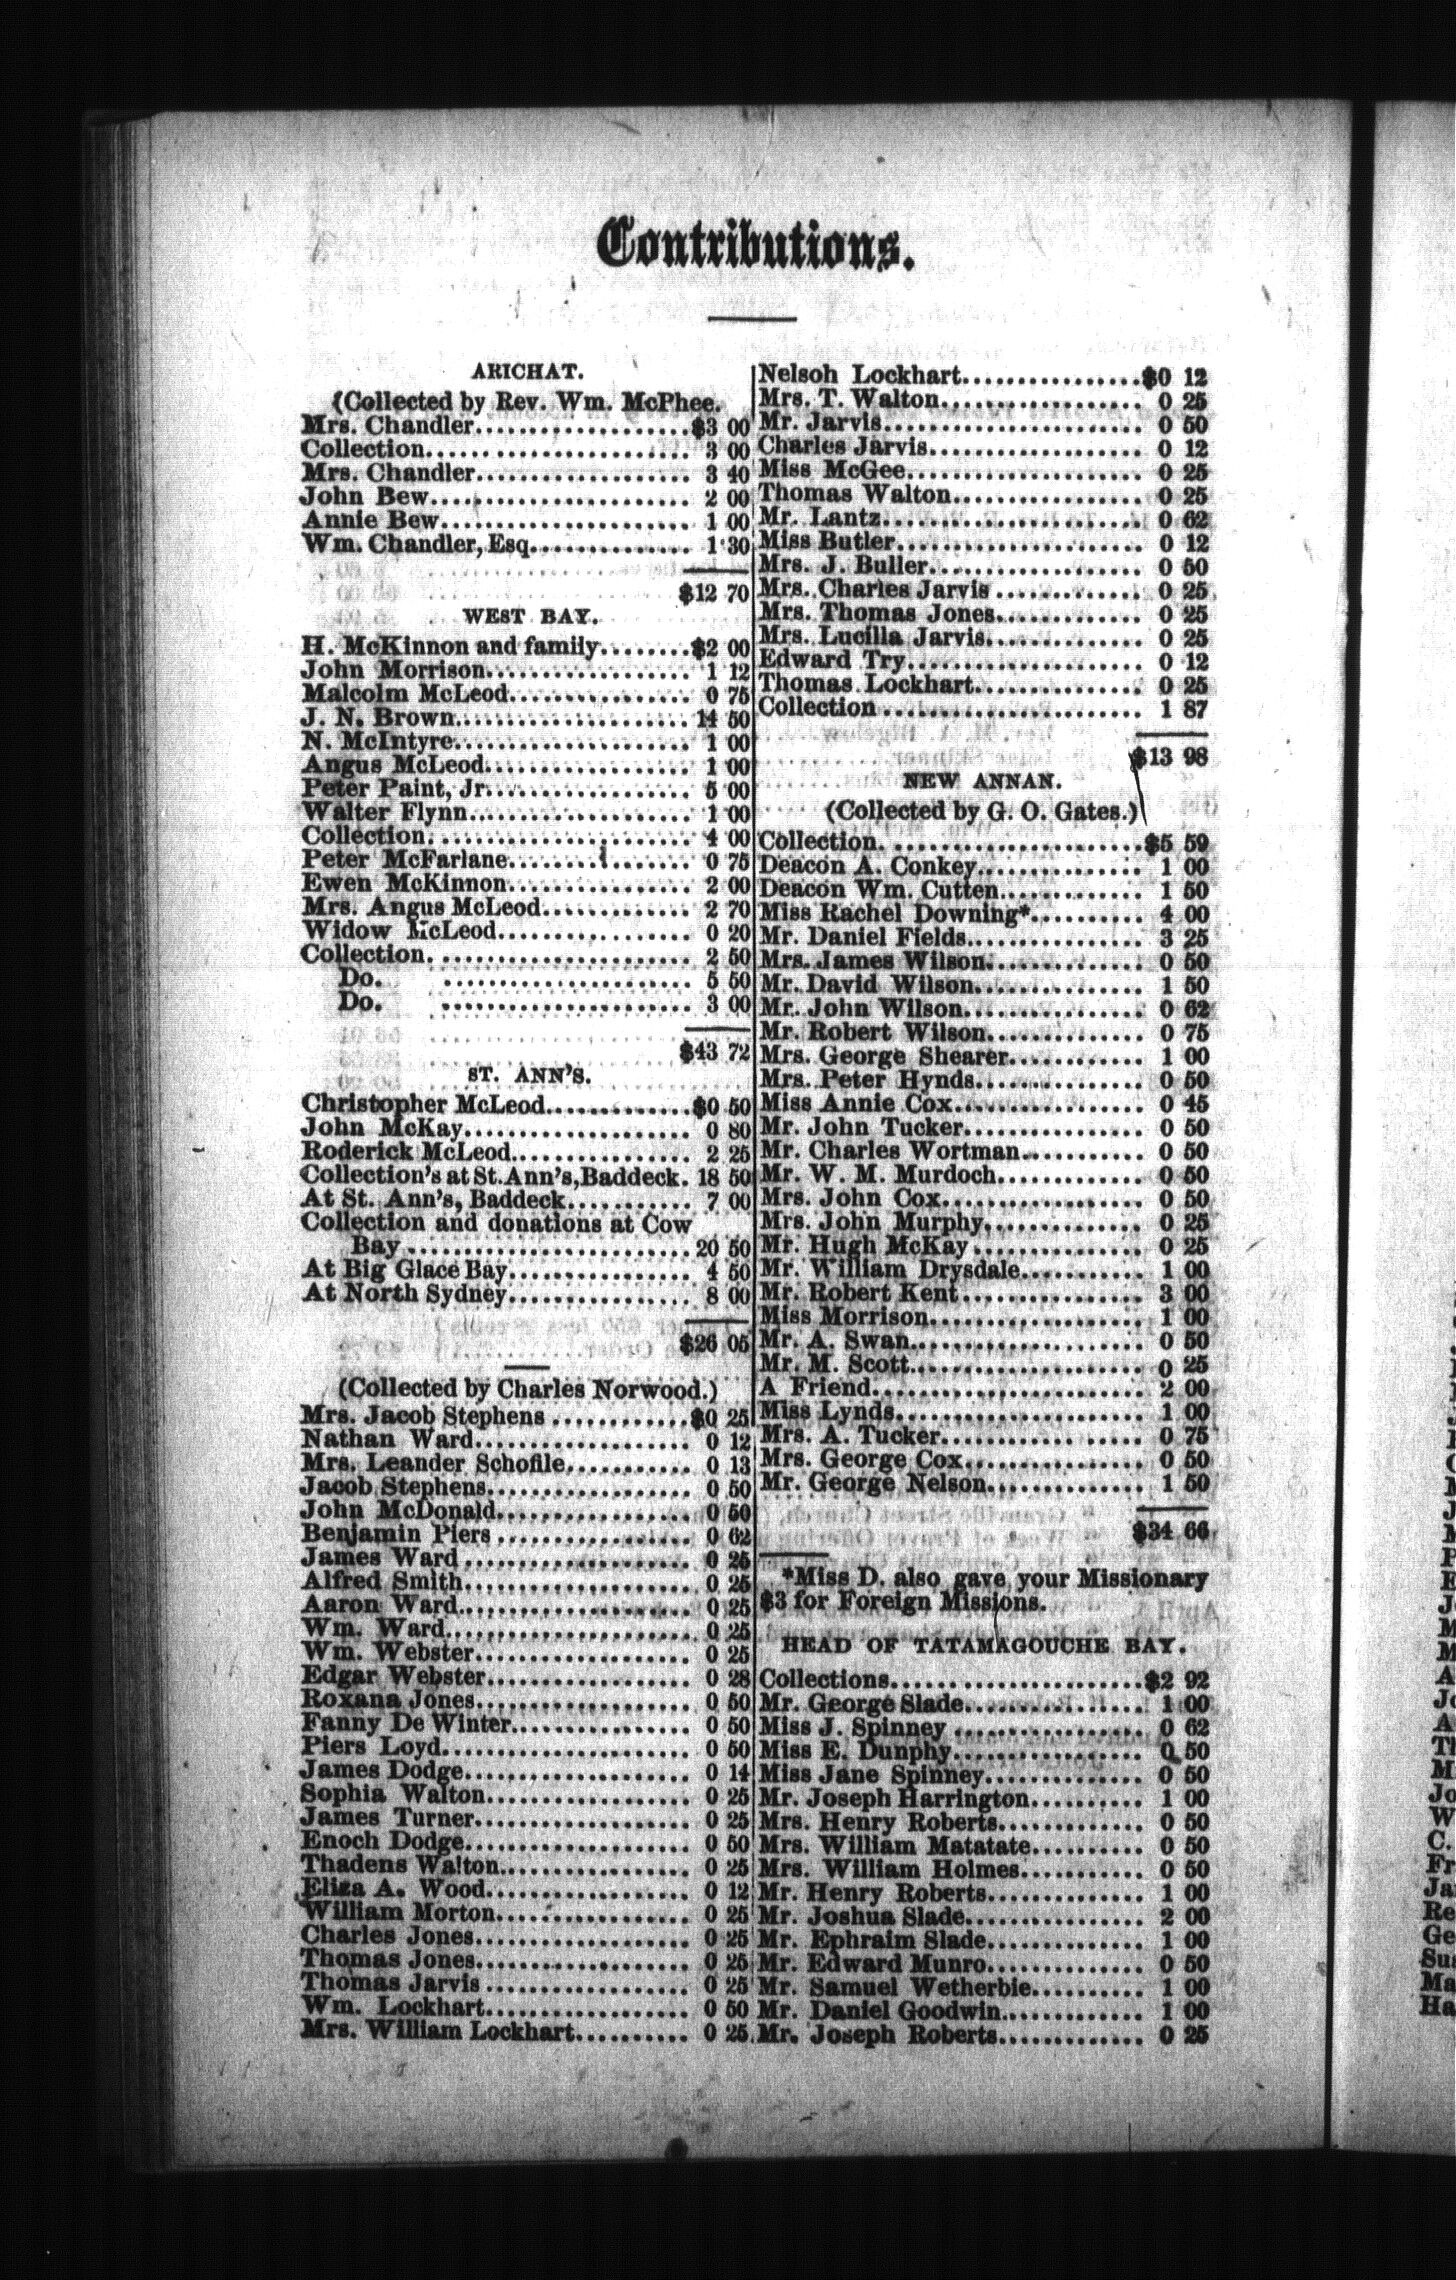 Contributions.
ARICHAT.
(Collected by Rev. Wm. McPhee.
Mrs. Chandler...................$3 00
Collection....................... 3 00
Mrs. Chandler................... 3 40
John Bew....................... 2 00
Annie Bew...................... 1 00
Wm. Chandler, Esq............... 1 30
$12 70
WEST BAY.
H. McKinnon and family........$2 00
John Morrison.................. 1 12
Malcolm McLeod................ 0 75
J. N. Brown.................... 14 50
N. McIntyre.................... 1 00
Angus McLeod.................. 1 00
Peter Paint, Jr.................. 5 00
Walter Flynn................... 1 00
Collection....................... 4 00
Peter McFarlane................ 0 75
Ewen McKinnon................ 2 00
Mrs. Angus McLeod............. 2 70
Widow McLeod................. 0 20
Collection....................... 2 50
Do. ...................... 5 50
Do. ...................... 3 00
$43 72
ST. ANN'S.
Christopher McLeod.............$0 50
John McKay.................... 0 80
Roderick McLeod................ 2 25
Collection's at St. Ann's, Baddeck. 18 50
At St. Ann's, Baddeck........... 7 00
Collection and donations at Cow
Bay ........................ 20 50
At Big Glace Bay................ 4 50
At North Sydney................ 8 00
$26 05
(Collected by Charles Norwood.)
Mrs. Jacob Stephens ............$0 25
Nathan Ward................... 0 12
Mrs. Leander Schofile........... 0 13
Jacob Stephens.................. 0 50
John McDonald................. 0 50
Benjamin Piers ................. 0 62
James Ward .................... 0 25
Alfred Smith.................... 0 25
Aaron Ward.................... 0 25
Wm. Ward..................... 0 25
Wm. Webster................... 0 25
Edgar Webster.................. 0 28
Roxana Jones................... 0 50
Fanny De Winter................ 0 50
Piers Loyd...................... 0 50
James Dodge.................... 0 14
Sophia Walton.................. 0 25
James Turner................... 0 25
Enoch Dodge.................... 0 50
Thadens Walton................. 0 25
Eliza A. Wood.................. 0 12
William Morton................. 0 25
Charles Jones................... 0 25
Thomas Jones................... 0 25
Thomas Jarvis .................. 0 25
Wm. Lockhart.................. 0 50
Mrs. William Lockhart.......... 0 25
Nelsoh Lockhart................$0 12
Mrs. T. Walton.................. 0 25
Mr. Jarvis....................... 0 50
Charles Jarvis................... 0 12
Miss McGee..................... 0 25
Thomas Walton................. 0 25
Mr. Lantz....................... 0 62
Miss Butler...................... 0 12
Mrs. J. Buller................... 0 50
Mrs. Charles Jarvis .............. 0 25
Mrs. Thomas Jones.............. 0 25
Mrs. Lucilla Jarvis............... 0 25
Edward Try..................... 0 12
Thomas Lockhart............... 0 25
Collection ....................... 1 87
$13 98
NEW ANNAN.
(Collected by G. O. Gates.)
Collection........................$5 59
Deacon A. Conkey............... 1 00
Deacon Wm. Cutten............. 1 50
Miss Rachel Downing*.......... 4 00
Mr. Daniel Fields................ 3 25
Mrs. James Wilson............... 0 50
Mr. David Wilson................ 1 50
Mr. John Wilson................. 0 62
Mr. Robert Wilson............... 0 75
Mrs. George Shearer............. 1 00
Mrs. Peter Hynds................ 0 50
Miss Annie Cox.................. 0 45
Mr. John Tucker................. 0 50
Mr. Charles Wortman............ 0 50
Mr. W. M. Murdoch............. 0 50
Mrs. John Cox................... 0 50
Mrs. John Murphy............... 0 25
Mr. Hugh McKay ............... 0 25
Mr. William Drysdale............ 1 00
Mr. Robert Kent ................ 3 00
Miss Morrison................... 1 00
Mr. A. Swan..................... 0 50
Mr. M. Scott..................... 0 25
A Friend........................ 2 00
Miss Lynds...................... 1 00
Mrs. A. Tucker.................. 0 75
Mrs. George Cox................. 0 50
Mr. George Nelson............... 1 50
$34 66
*Miss D. also gave your Missionary
$3 for Foreign Missions.
HEAD OF TATAMAGOUCHE BAY.
Collections.......................$2 92
Mr. George Slade................ 1 00
Miss J. Spinney ................. 0 62
Miss E. Dunphy................. 0 50
Miss Jane Spinney............... 0 50
Mr. Joseph Harrington.......... 1 00
Mrs. Henry Roberts............. 0 50
Mrs. William Matatate.......... 0 50
Mrs. William Holmes............ 0 50
Mr. Henry Roberts.............. 1 00
Mr. Joshua Slade................ 2 00
Mr. Ephraim Slade.............. 1 00
Mr. Edward Munro.............. 0 50
Mr. Samuel Wetherbie.......... 1 00
Mr. Daniel Goodwin............. 1 00
Mr. Joseph Roberts.............. 0 25